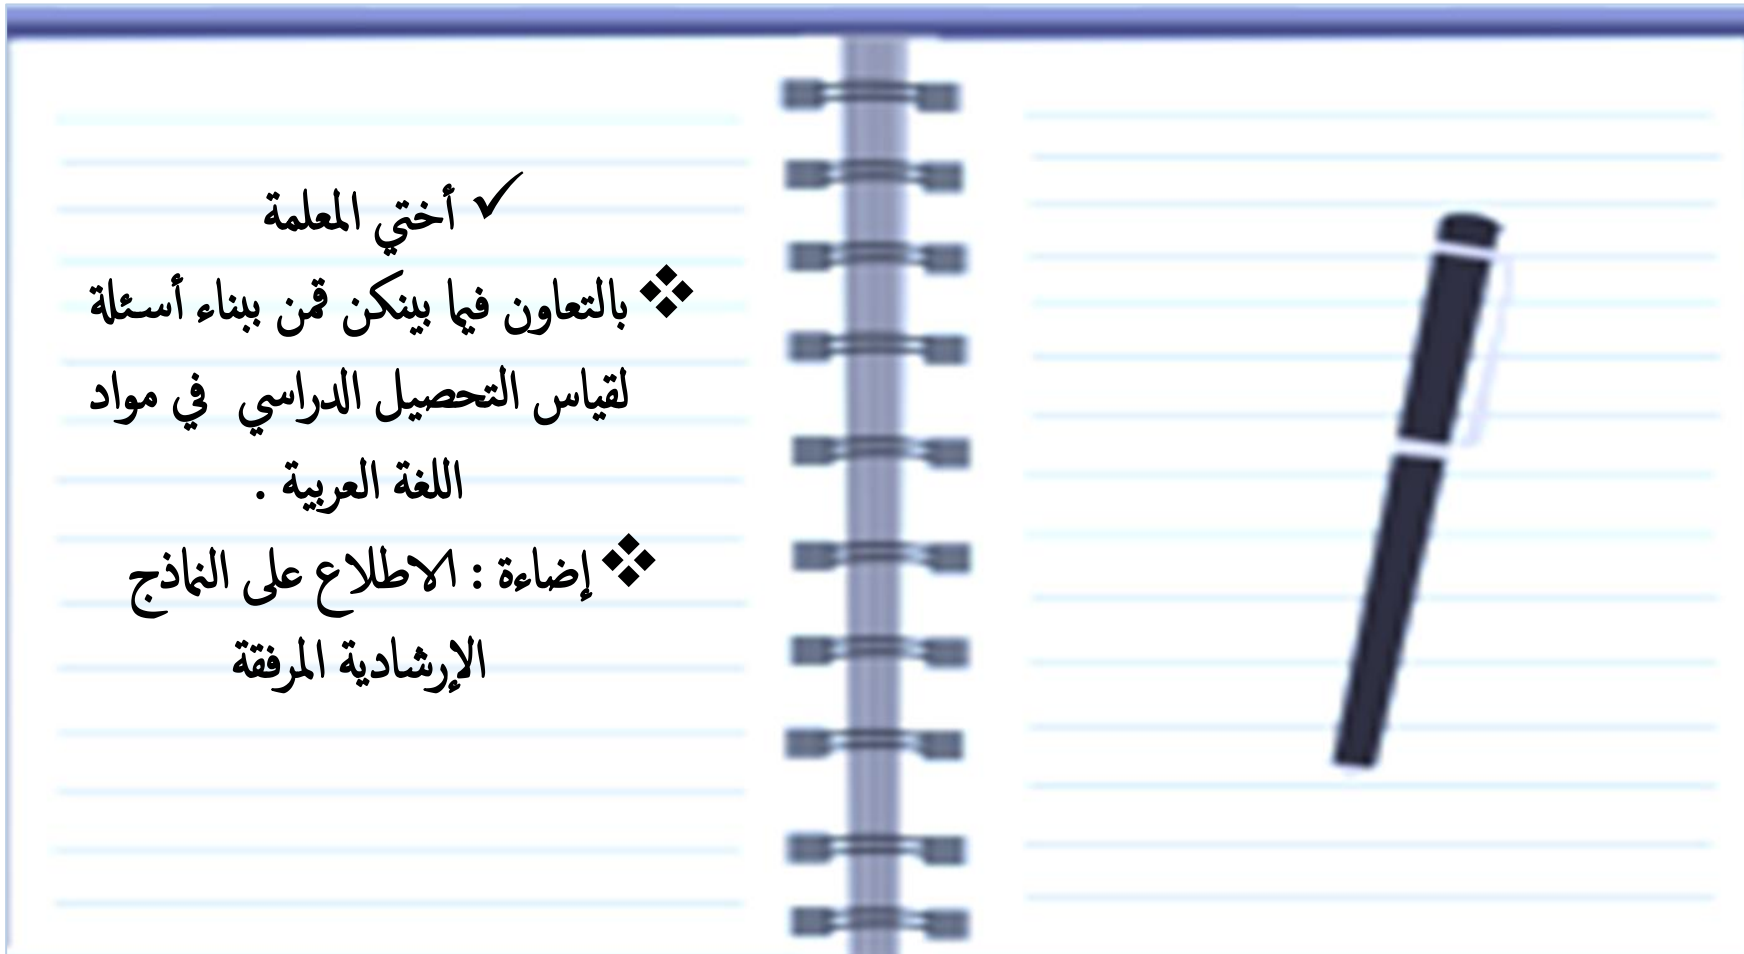 ✓ أختي المعلمة
❖ بالتعاون فيما بينكن قمن ببناء أسئلة
لقياس التحصيل الدراسي في مواد
اللغة العربية .
❖ إضاءة : الاطلاع على النماذج
الإرشادية المرفقة